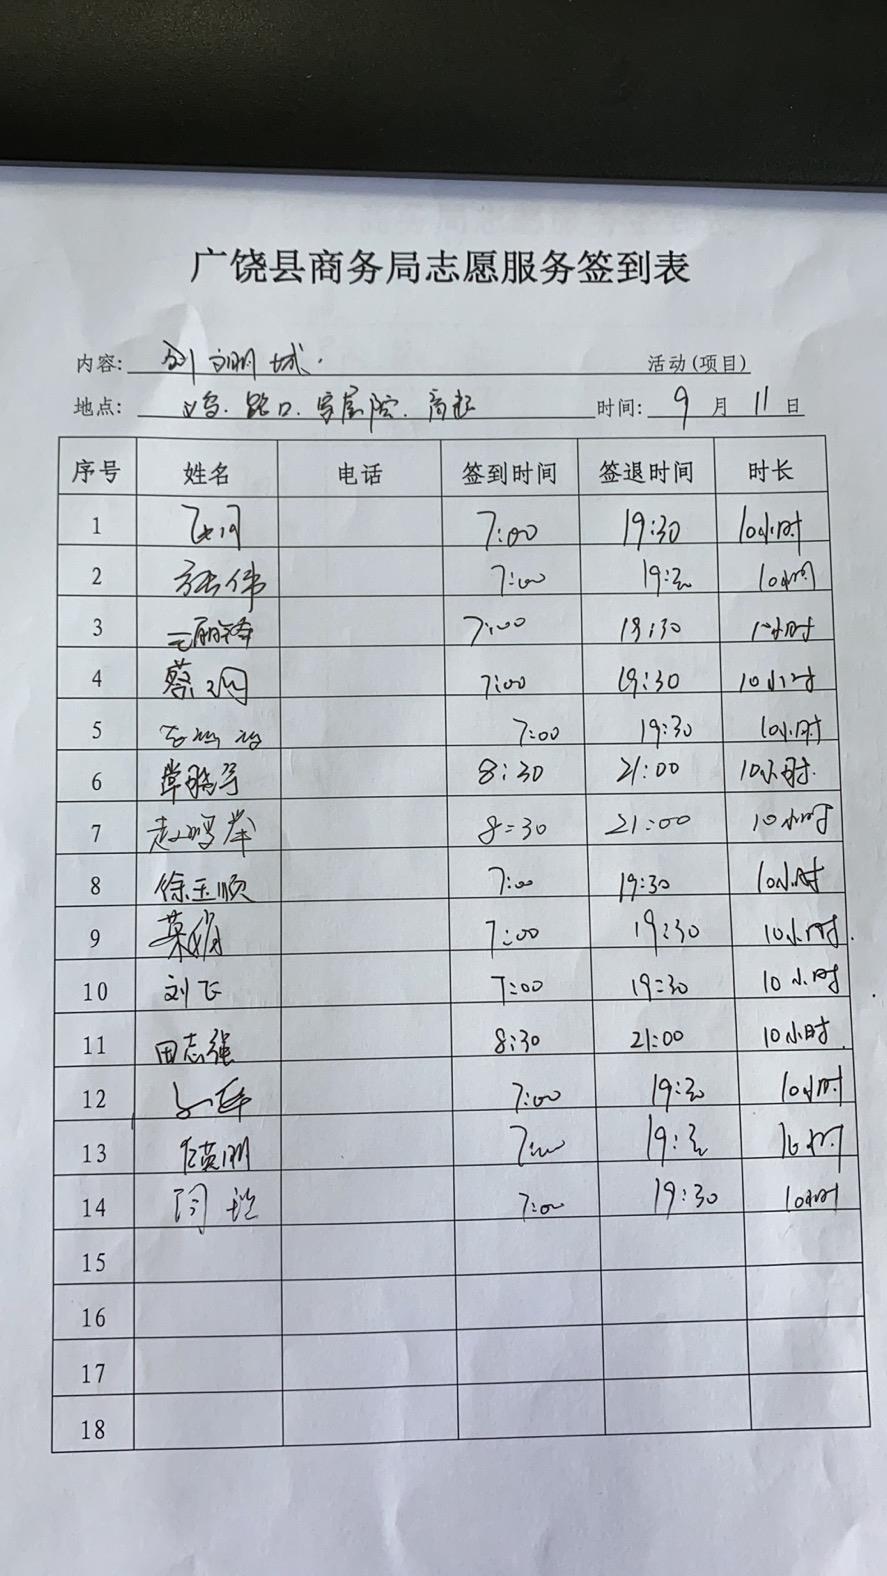 广饶县商务局志愿服务签到表
内容: 创文明城. 活动(项目)
地点: 路口. 家属院. 商超 时间: 9 月 11 日
序号 姓名 电话 签到时间 签退时间 时长
1 7:00 19:30 10小时
2 张伟 7:00 19:30 10小时
3 7:00 19:30 10小时
4 蔡 7:00 19:30 10小时
5 7:00 19:30 10小时
6 8:30 21:00 10小时.
7 赵鹏举 8:30 21:00 10小时
8 徐玉顺 7:00 19:30 10小时
9 7:00 19:30 10小时.
10 刘飞 7:00 19:30 10小时
11 田志强 8:30 21:00 10小时.
12 7:00 19:30 10小时
13 7:00 19:30 10小时
14 7:00 19:30 10小时
15
16
17
18